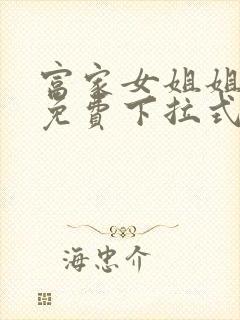 富家女姐姐
免費下拉式
海忠介